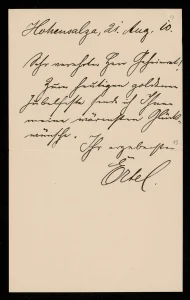 Hohensalza, 21. Aug. 10.
Sehr verehrter Herr Geheimrat!
Zum heutigen goldenen
Jubelfeste sende ich Ihnen
meine wärmsten Glück-
wünsche.
Ihr ergebenster
Ertel.